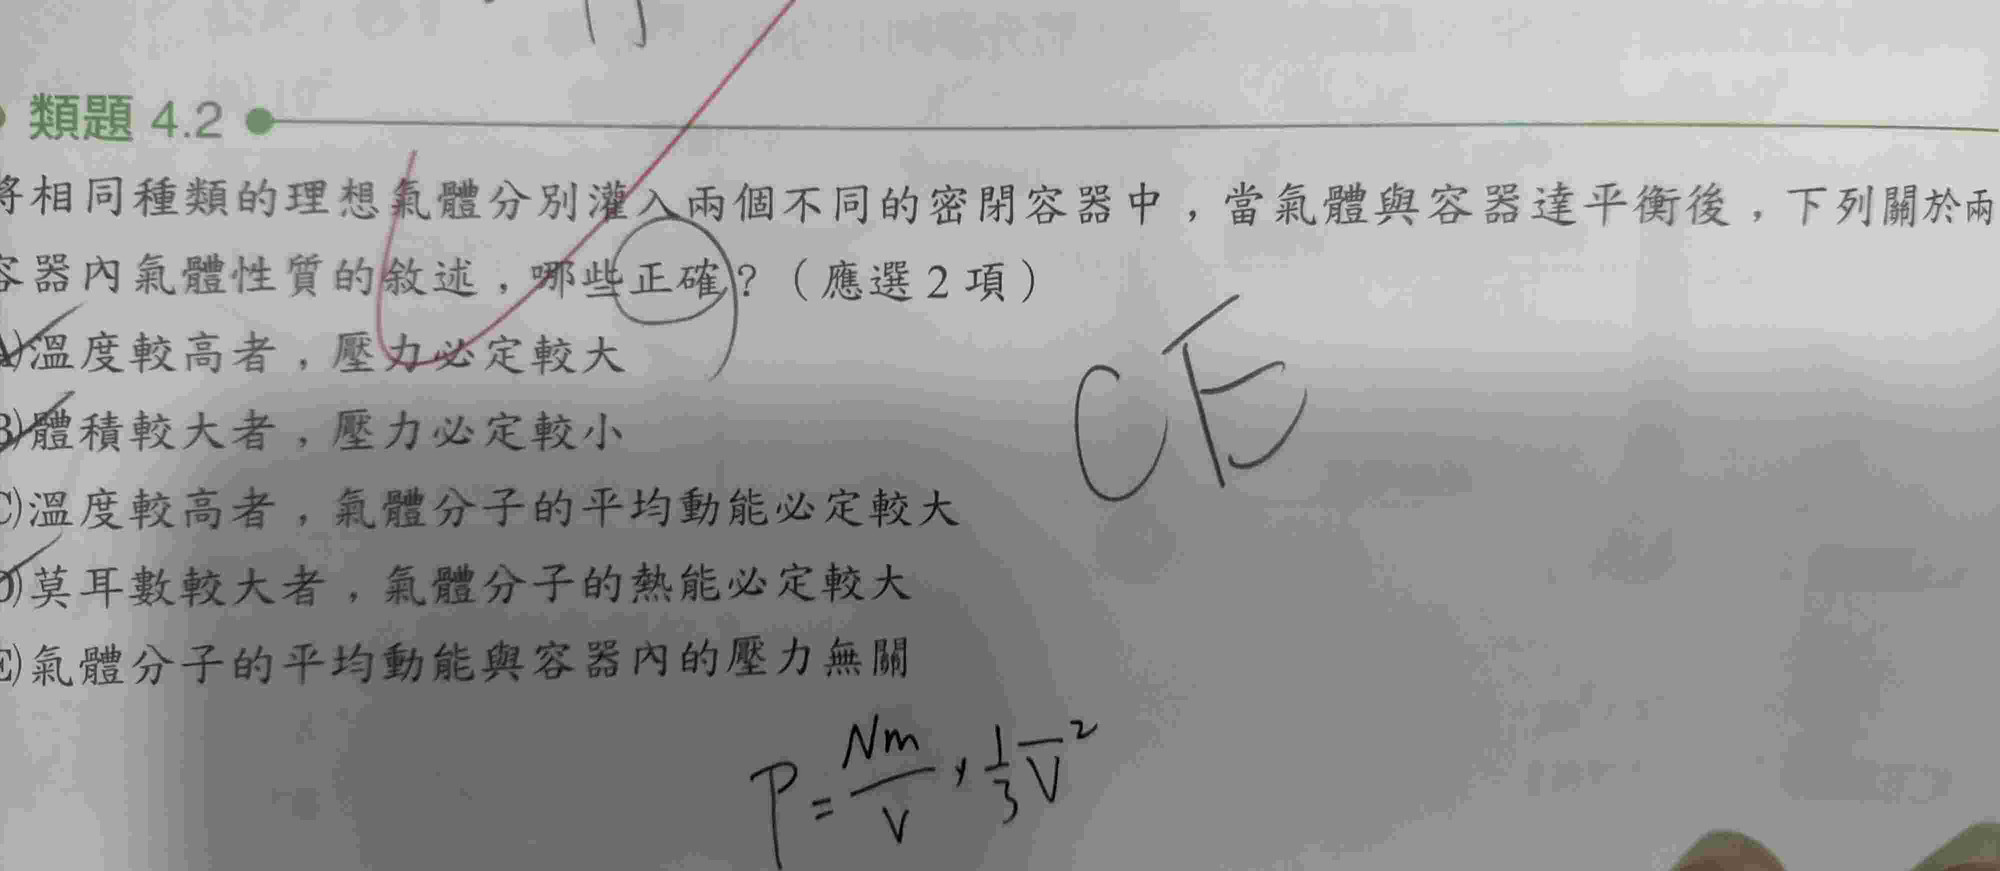 類題 4.2
將相同種類的理想氣體分別灌入兩個不同的密閉容器中，當氣體與容器達平衡後，下列關於兩
容器內氣體性質的敘述，哪些正確？（應選 2 項）
(A)溫度較高者，壓力必定較大
(B)體積較大者，壓力必定較小
(C)溫度較高者，氣體分子的平均動能必定較大
(D)莫耳數較大者，氣體分子的熱能必定較大
(E)氣體分子的平均動能與容器內的壓力無關
CE
P = Nm/V × 1/3 V̅²